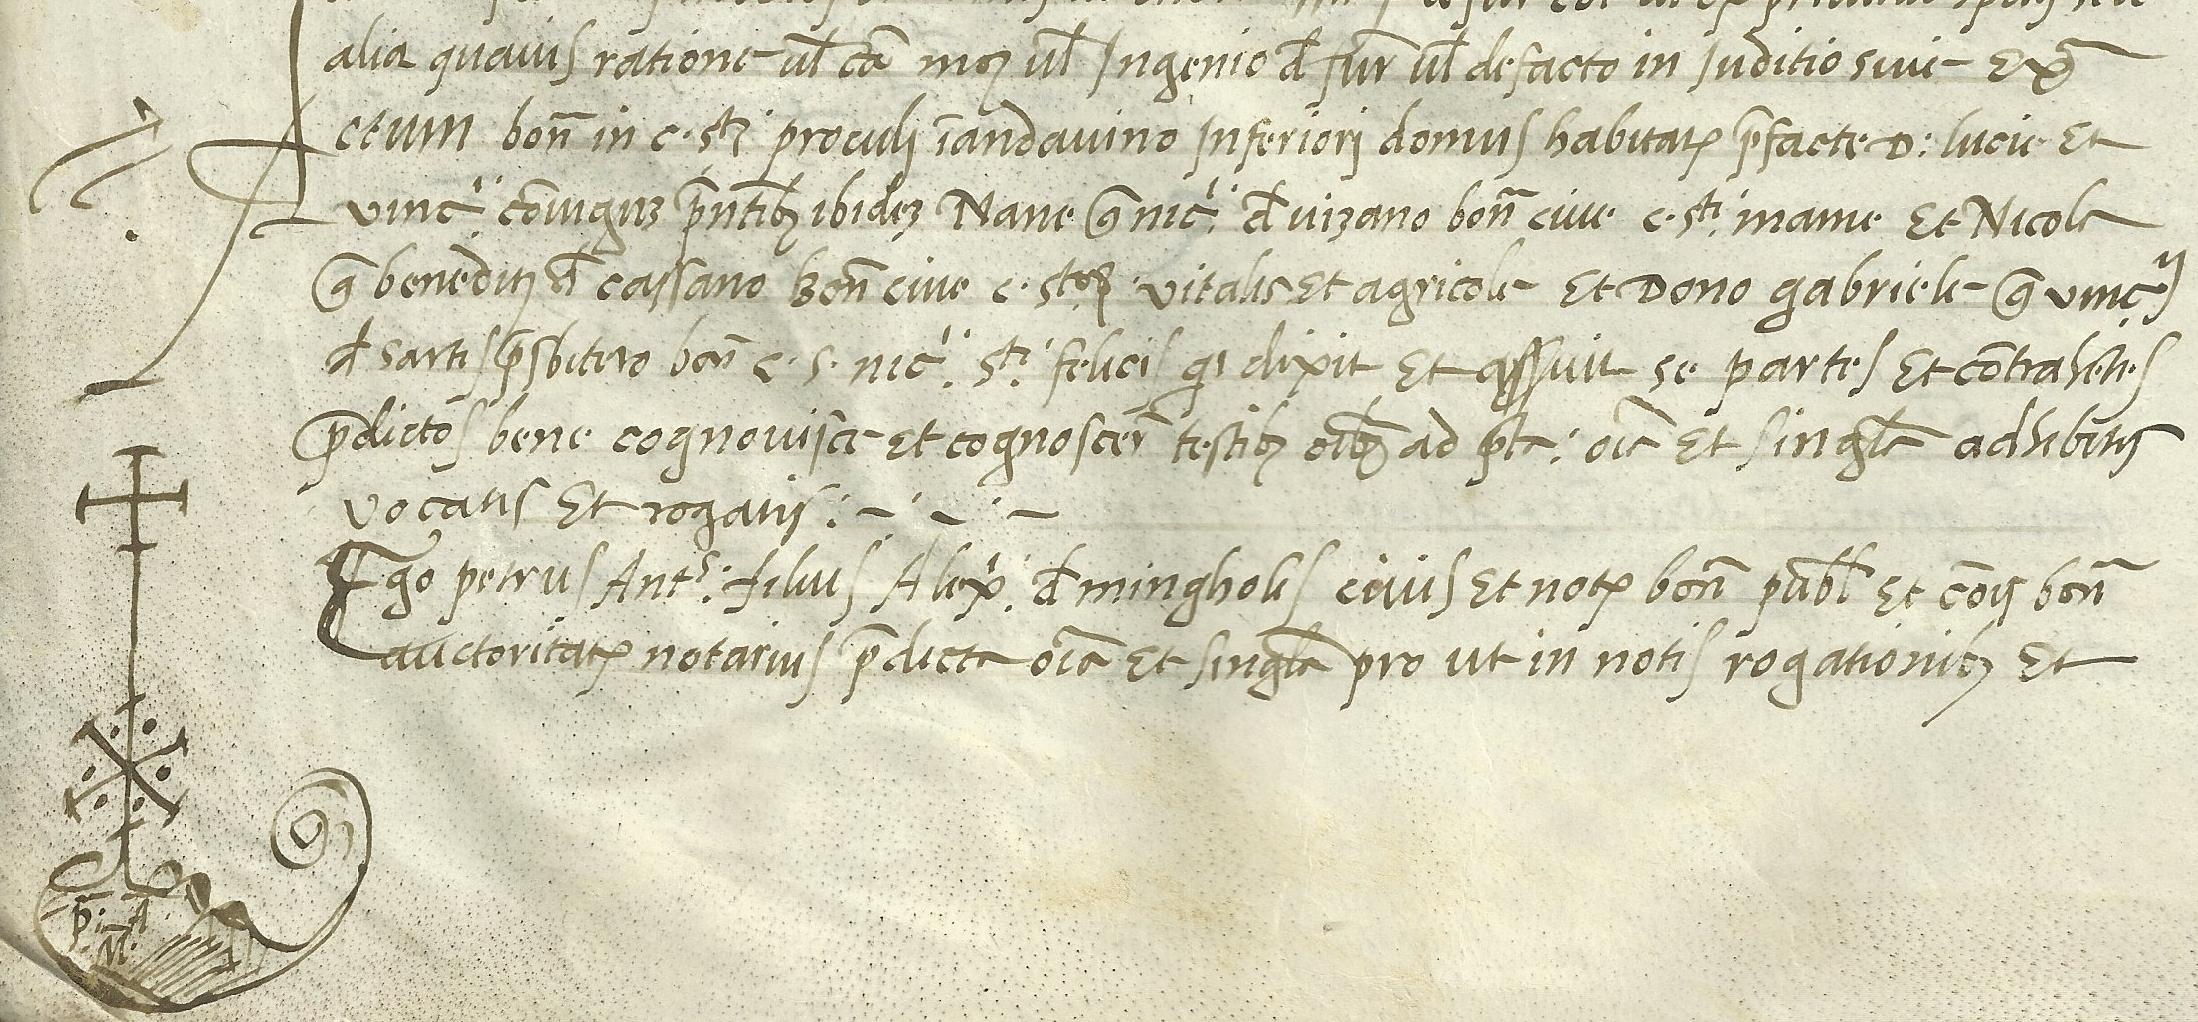 alia quavis ratione vl cā mō vl Ingenio đ Jur̄ vl defacto in Juditio sive Ex̄ª
ctum bon̄ in c. stⁱ proculj īandavino Inferiorj domus habitatꝭ p̄facte D: lucie Et
vincⁱ: cōiuguꝫ p̄ntibꝫ ibideꝫ Nane q̄ nicⁱ: đ vizano bon̄ cive c. stⁱ: mame Et Nicola
q̄ beneditꝭ đ cassano Bon̄ cive c. stoꝝ vitalis Et agricole Et Dono gabriele q̄ vincⁱʲ
đ sartis p̄sbitero bon̄ c. s. nicⁱ: stⁱ: felicis qi dixit Et assuit se partes Et cōtrahētes
p̄dictos bene cognovisce Et cognoscer̄ testibꝫ oībꝫ ad p̄ta: oīa Et singl̄a adhibitꝭ
vocatis Et rogatis: ~ ~ ~
Ego petrus Antˢ: filius Alexⁱ: đ mingholis civis Et notꝭ bon̄ publ̄ Et cōis bon̄
auctoritatꝭ notarius p̄dicta oīa Et singl̄a pro ut in notis rogationibꝫ Et
p̄: A
M: